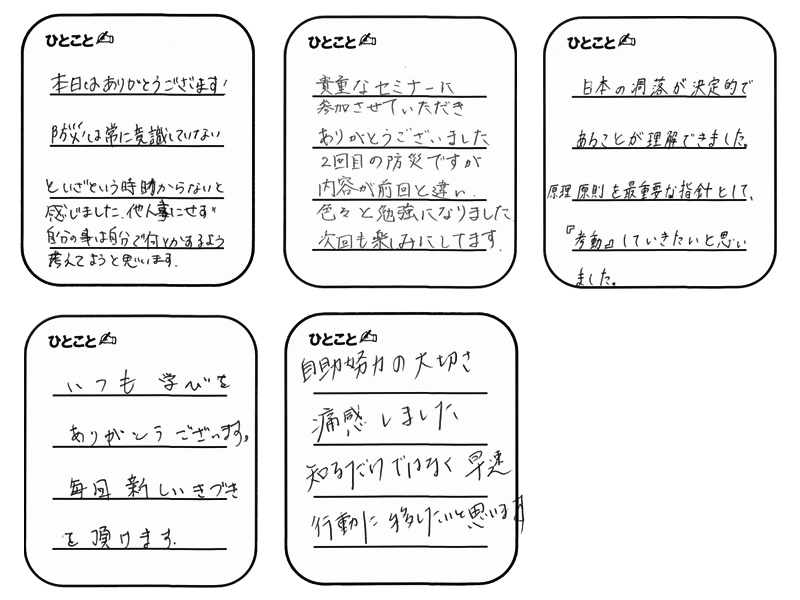 ひとこと
本日はありがとうございます!
防災は常に意識していない
といざという時助からないと
感じました。他人事にせず
自分の事は自分で何とかするよう
考えてようと思います。
ひとこと
貴重なセミナーに
参加させていただき
ありがとうございました
2回目の防災ですが
内容が前回と違い、
色々と勉強になりました
次回も楽しみにしてます。
ひとこと
日本の凋落が決定的で
あることが理解できました。
原理原則を最重要な指針として、
『考動』していきたいと思い
ました。
ひとこと
いつも 学びを
ありがとうございます。
毎回 新しいきづき
を頂けます。
ひとこと
自助努力の大切さ
痛感しました
知るだけではなく早速
行動に移したいと思います